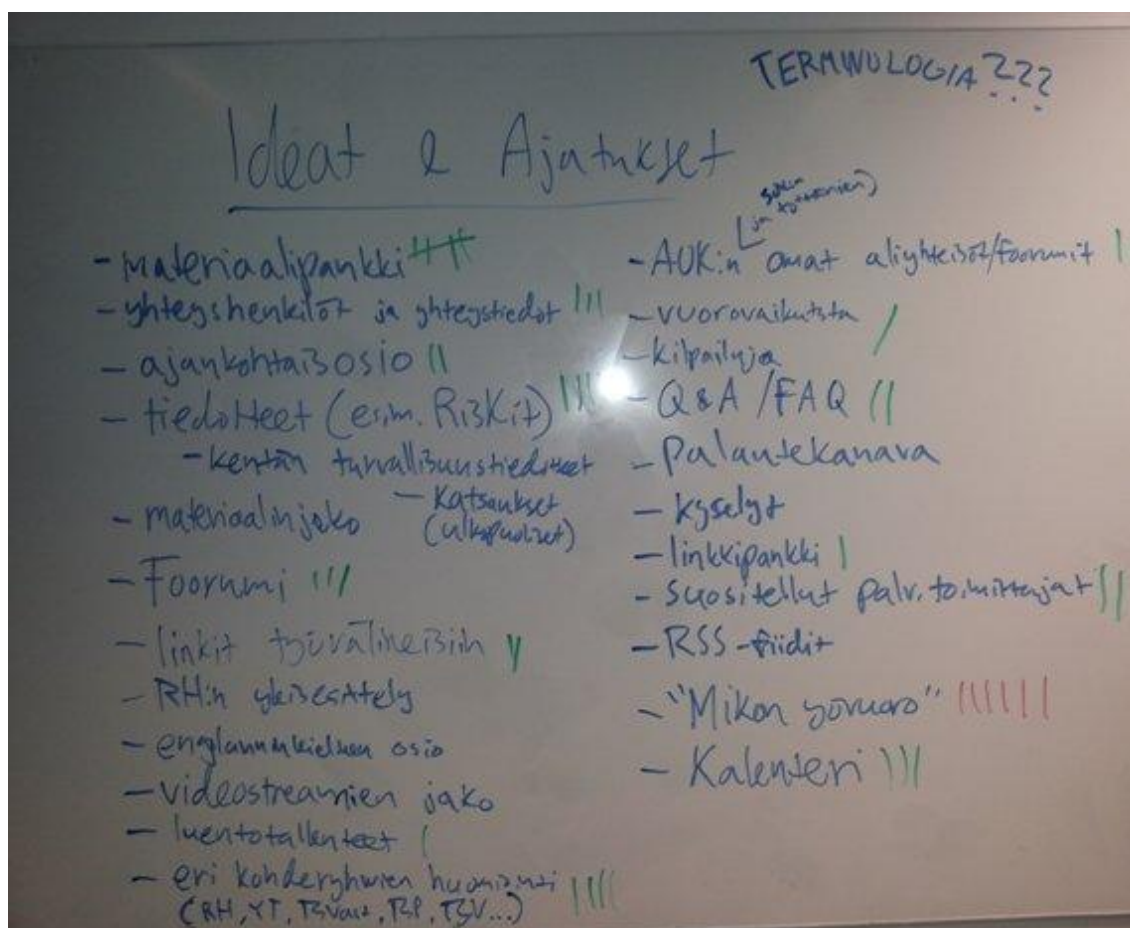 TERMINOLOGIA ???
Ideat & Ajatukset
- materiaalipankki
- yhteyshenkilöt ja yhteystiedot
- ajankohtaisosio
- tiedotteet (esim. RISKit)
- kentän turvallisuustiedotteet
- katsaukset
(ulkopuoliset)
- materiaalinjako
- Foorumi
- linkit työvälineisiin
- RH:n yleisesittely
- englanninkielinen osio
- videostreamien jako
- luentotallenteet
- eri kohderyhmien huomiointi
(RH, YT,
ja
- AUK:n omat aliyhteisöt/foorumit
- vuorovaikutusta
- kilpailuja
- Q&A / FAQ
- Palautekanava
- kyselyt
- linkkipankki
- suositellut palv.toimittajat
- RSS-fiidit
- "Mikon
- Kalenteri